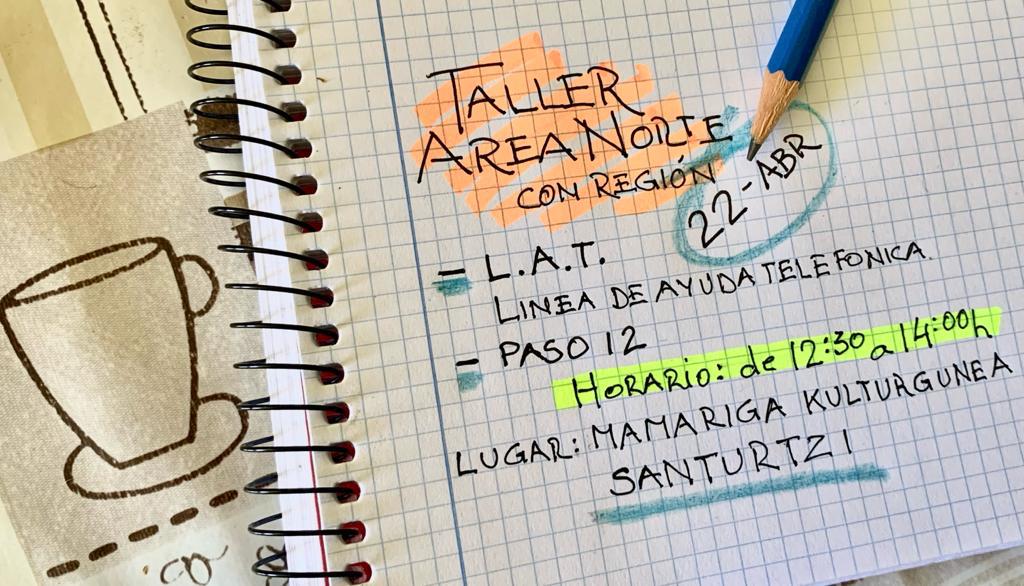 TALLER
AREA NORTE
CON REGIÓN
22-ABR
= L.A.T.
LINEA DE AYUDA TELEFONICA.
= PASO 12
HORARIO: de 12:30 a 14:00h
LUGAR: MAMARIGA KULTURGUNEA
SANTURTZI